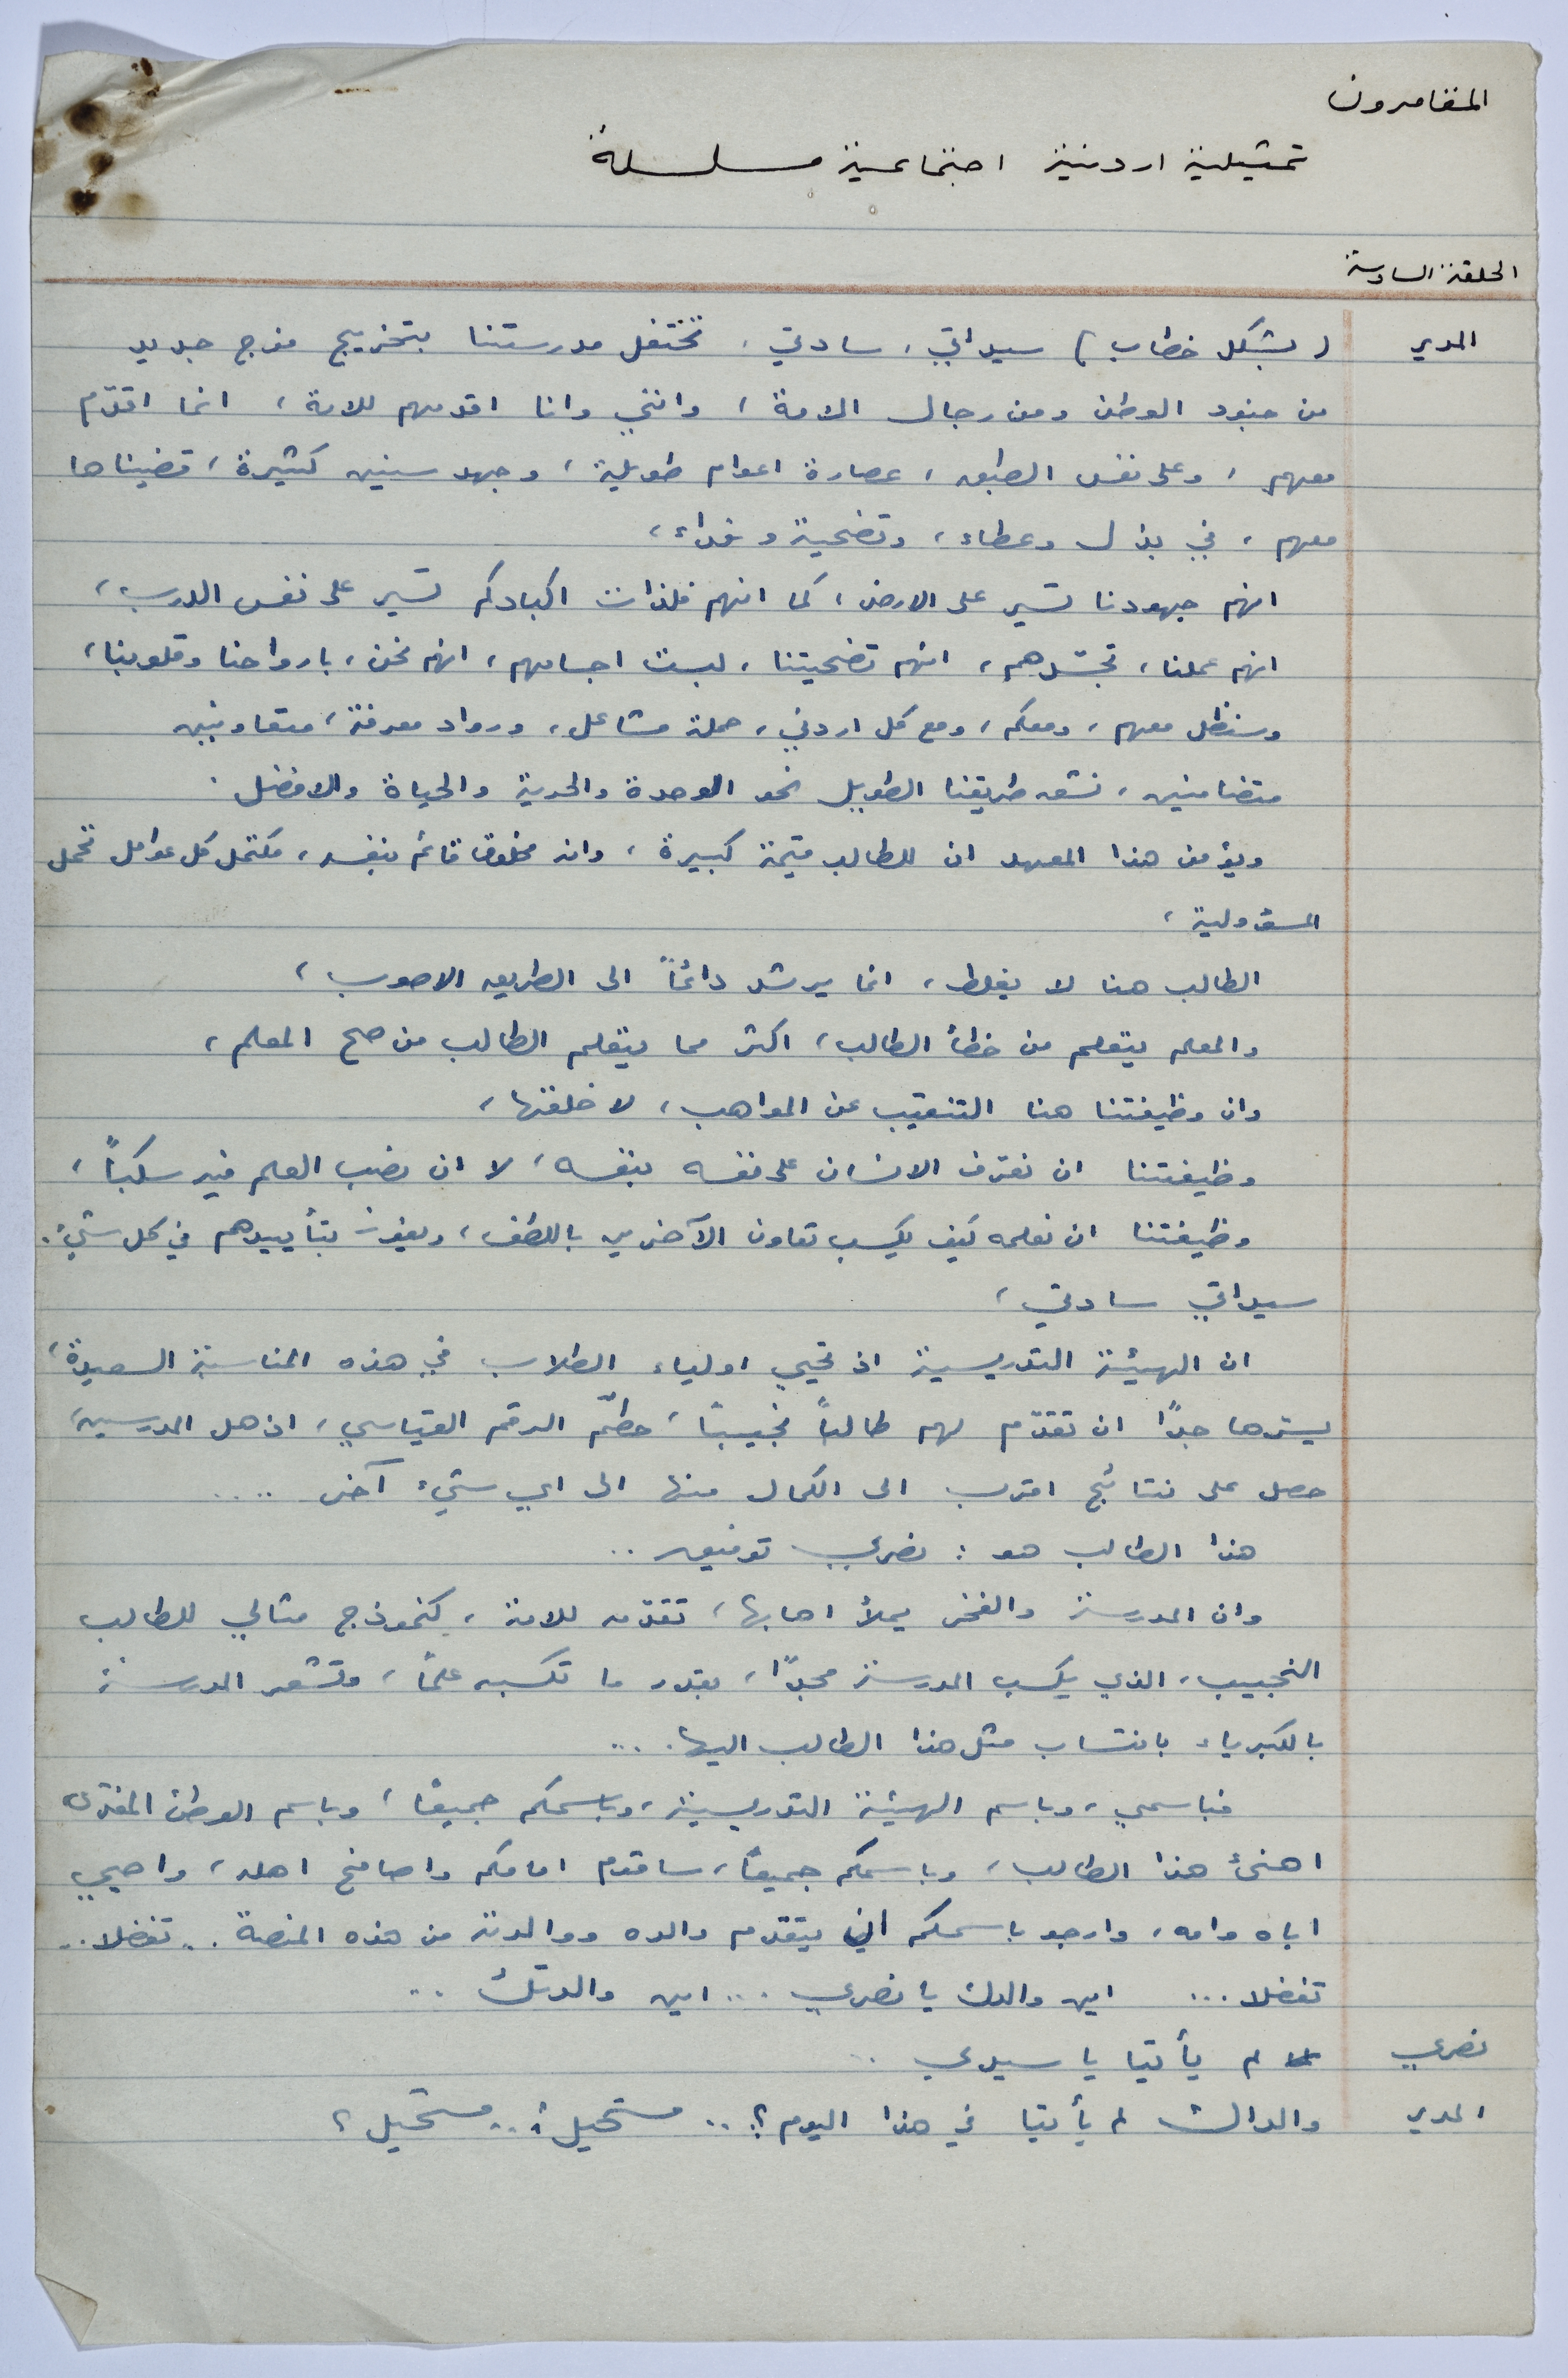 المغامرون
تمثيلية اردنية اجتماعية مسلسلة
الحلقة السادسة
المدير (بشكل خطاب) سيداتي، سادتي، تحتفل مدرستنا بتخريج فوج جديد
من جنود الوطن ومن رجال الامة، وانني وانا اقدمهم للامة، انما اقدّم
معهم، وعلى نفس الطبق، عصارة اعوام طويلة، وجهد سنين كثيرة، قضيناها
معهم، في بذل وعطاء، وتضحية وفداء،
انهم جهودنا تسير على الارض، كما انهم فلذات اكبادكم تسير على نفس الدرب،
انهم عملنا، تجسّدهم، انهم تضحيتنا، لبست اجسامهم، انهم نحن، بارواحنا وقلوبنا،
وسنظل معهم، ومعكم، ومع كل اردني، حملة مشاعل، ورواد معرفة، متعاونين
متضامنين، نشق طريقنا الطويل نحو الوحدة والحرية والحياة والافضل.
ويؤمن هذا المعهد ان للطالب قيمة كبيرة، وانه مخلوق قائم بنفسه، مكتمل كل عوامل تحمل
المسؤولية،
الطالب هنا لا يغلط، انما يرشد دائماً الى الطريق الاصوب،
والمعلم يتعلم من خطأ الطالب، اكثر مما يتعلم الطالب من صح المعلم،
وان وظيفتنا هنا التنقيب عن المواهب، لا خلقها،
وظيفتنا ان نعرّف الانسان على نفسه بنفسه، لا ان نصب العلم فيه سكباً،
وظيفتنا ان نعلمه كيف يكسب تعاون الآخرين باللطف، ويفوز بتأييدهم في كل شيء.
سيداتي سادتي،
ان الهيئة التدريسية اذ تحيي اولياء الطلاب في هذه المناسبة السعيدة،
يسرها جدًا ان تقدّم لهم طالباً نجيباً، حطّم الرقم القياسي، اذهل المدرسين،
حصل على نتائج اقرب الى الكمال منها الى اي شيء آخر .....
هذا الطالب هو: نصري توفيق ..
وان المدرسة والفخر يملأ اهابها، تقدّمه للامة، كنموذج مثالي للطالب
النجيب، الذي يكسب المدرسة مجدًا، بقدر ما تكسبه علماً، وتشعر المدرسة
بالكبرياء بانتساب مثل هذا الطالب اليها....
فباسمي، وباسم الهيئة التدريسية، وباسمكم جميعًا، وباسم الوطن المفدى
اهنئ هذا الطالب، وباسمكم جميعًا، ساقدم امامكم واصافح اهله، واحيي
اباه وامه، وارجو باسمكم ان يتقدم والده ووالدته من هذه المنصة .. تفضلا..
تفضلا ... اين والدك يا نصري ... اين والدتك ..
نصري لم يأتيا يا سيدي ..
المدير والداك لم يأتيا في هذا اليوم؟ .. مستحيل؟.. مستحيل؟